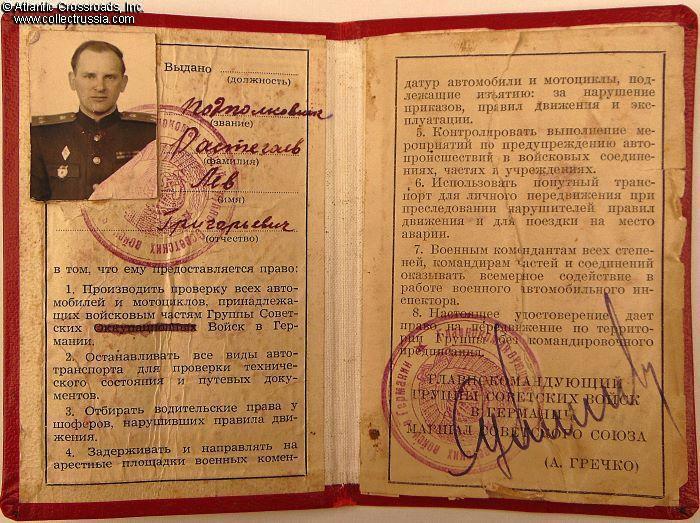 © Atlantic Crossroads, Inc.
www.collectrussia.com
Выдано
(должность)
подполковник
(звание)
Растегаев
(фамилия)
Лев
(имя)
Григорьевич
(отчество)
в том, что ему предоставляется право:
1. Производить проверку всех авто-
мобилей и мотоциклов, принадлежа-
щих войсковым частям Группы Совет-
ских Оккупационных Войск в Гер-
мании.
2. Останавливать все виды авто-
транспорта для проверки техничес-
кого состояния и путевых доку-
ментов.
3. Отбирать водительские права у
шоферов, нарушивших правила дви-
жения.
4. Задерживать и направлять на
арестные площадки военных комен-
датур автомобили и мотоциклы, под-
лежащие изъятию: за нарушение
приказов, правил движения и экс-
плуатации.
5. Контролировать выполнение ме-
роприятий по предупреждению авто-
происшествий в войсковых соедине-
ниях, частях и учреждениях.
6. Использовать попутный транс-
порт для личного передвижения при
преследовании нарушителей правил
движения и для поездки на место
аварии.
7. Военным комендантам всех степе-
ней, командирам частей и соединений
оказывать всемерное содействие в
работе военного автомобильного ин-
спектора.
8. Настоящее удостоверение дает
право на передвижение по террито-
рии Группы без командировочного
предписания.
ГЛАВНОКОМАНДУЮЩИЙ
ГРУППЫ СОВЕТСКИХ ВОЙСК
В ГЕРМАНИИ
МАРШАЛ СОВЕТСКОГО СОЮЗА
(А. ГРЕЧКО)